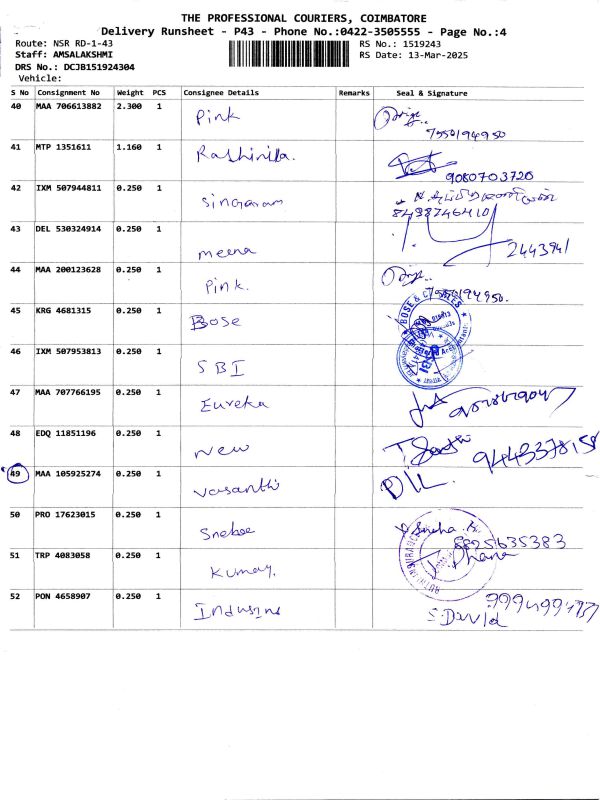 THE PROFESSIONAL COURIERS, COIMBATORE
Delivery Runsheet - P43 - Phone No.:0422-3505555 - Page No.:4
Route: NSR RD-1-43 RS No.: 1519243
Staff: AMSALAKSHMI RS Date: 13-Mar-2025
DRS No.: DCJB151924304
Vehicle:
S No Consignment No Weight PCS Consignee Details Remarks Seal & Signature
40 MAA 706613882 2.300 1 Pink
41 MTP 1351611 1.160 1 Rashinila. 9080703720
42 IXM 507944811 0.250 1 Singaram
8438746410
43 DEL 530324914 0.250 1 meena 2443941
44 MAA 200123628 0.250 1 Pink.
45 KRG 4681315 0.250 1 Bose
46 IXM 507953813 0.250 1 SBI
47 MAA 707766195 0.250 1 Eureka
48 EDQ 11851196 0.250 1 New
49 MAA 105925274 0.250 1 Vasanthi
50 PRO 17623015 0.250 1 Sneha
8825635383
51 TRP 4083058 0.250 1 Kumar. Dhana
52 PON 4658907 0.250 1 Indusind S. David